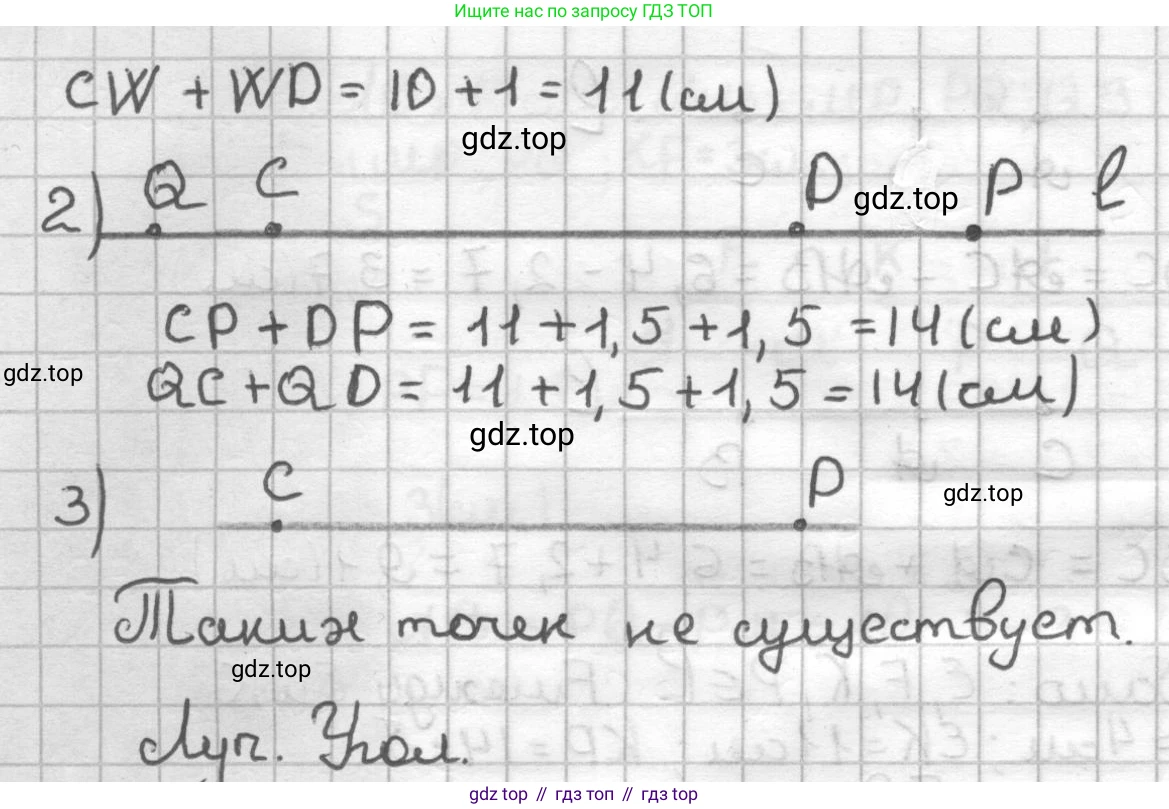 Ищите нас по запросу ГДЗ ТОП
CW + WD = 10 + 1 = 11 (см)
gdz.top
2) Q C D gdz.top P l
CP + DP = 11 + 1,5 + 1,5 = 14 (см)
gdz.top
QC + QD = 11 + 1,5 + 1,5 = 14 (см)
gdz.top
3) C D
gdz.top
Таких точек не существует.
gdz.top
Луч. Угол.
gdz top // гдз топ // гдз top